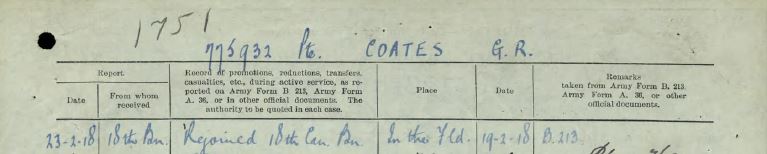 1751
775932 Pte. COATES G. R.
Report
Record of promotions, reductions, transfers, casualties, etc., during active service, as reported on Army Form B 213, Army Form A. 36, or in other official documents. The authority to be quoted in each case.
Place
Date
Remarks
taken from Army Form B. 213, Army Form A. 36, or other official documents.
Date
From whom received
23-2-18 18th Bn. Rejoined 18th Can. Bn. In the Fld. 19-2-18 B.213